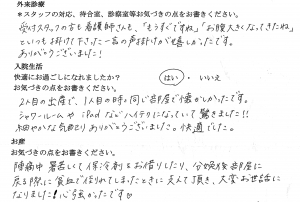 外来診療
*スタッフの対応、待合室、診察室等お気づきの点をお書きください。
受付スタッフの方も看護師さんも、「もうすぐですね」「お腹大きくなってきたね」
といつも掛けて下さった一言の声掛けが嬉しかったです。
ありがとうございました!
入院生活
快適にお過ごしになれましたか? はい ・ いいえ
お気づきの点をお書きください。
2人目の出産で、1人目の時と同じ部屋で懐かしかったです。
シャワールームや iPad などハイテクになっていて驚きました!!
細やかな気配り ありがとうございました。快適でした。
お産
お気づきの点をお書きください。
陣痛中 暑くて保冷剤をお借りしたり、分娩後お部屋に
戻る際に貧血で倒れてしまったときに支えて頂き、大変お世話に
なりました!心強かったです♡